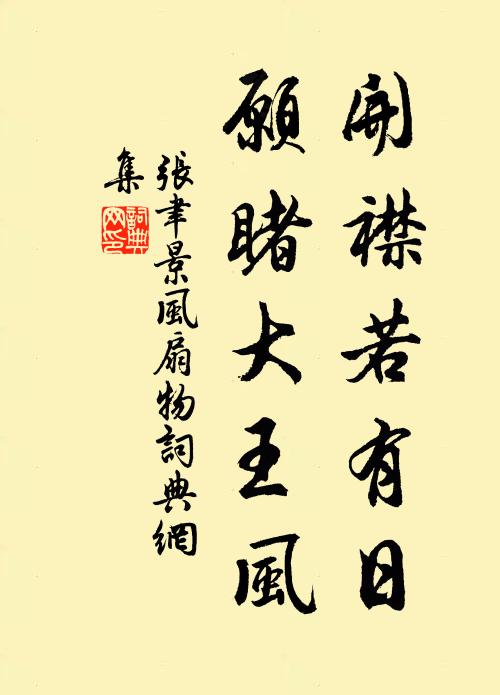 開襟若有日
願睹大王風
張聿景風扇物詞典網
集
詞典
网印